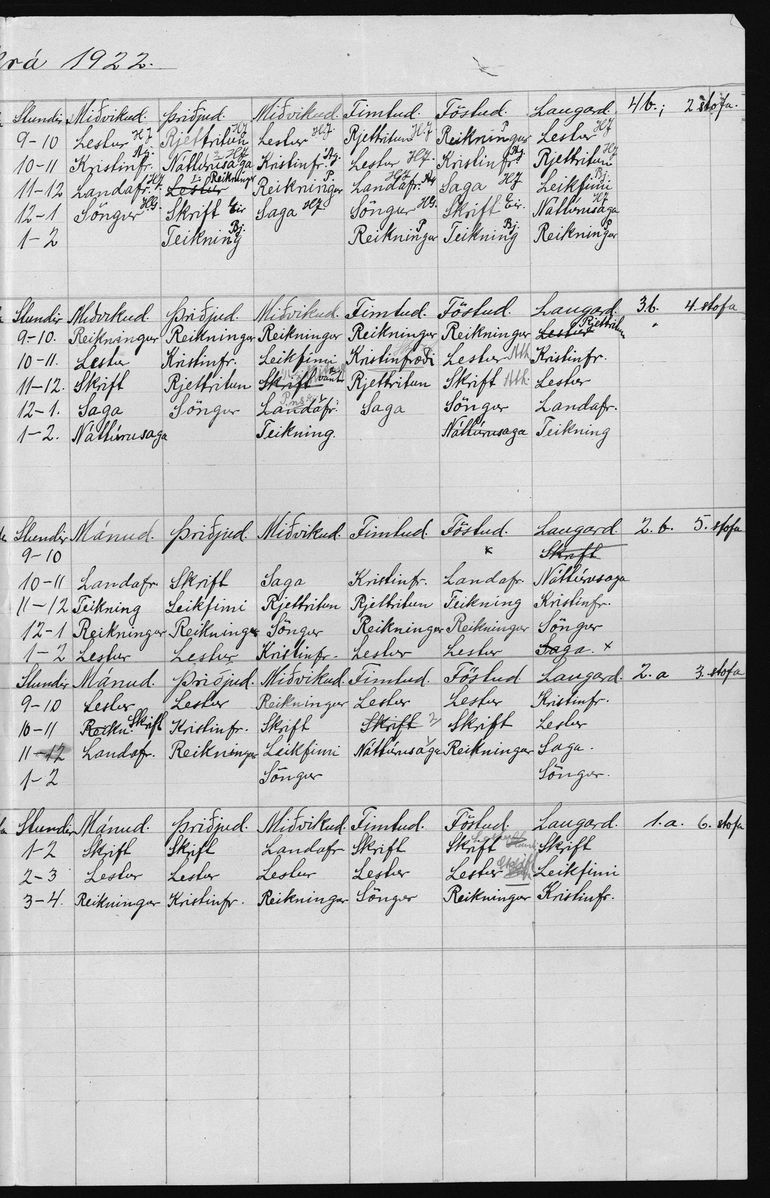 1922.
Stundir Miðvikud. Þriðjud. Miðvikud. Fimtud. Föstud. Laugard. 4 b.; 2 stofa.
9-10 Lestur HJ Rjettritun HJ Lestur HJ Rjettritun HJ Reikningur P. Lestur HJ
10-11 Kristinfr. Náttúrusaga HJ Kristinfr. Lestur HJ Kristinfr. Rjettritun HJ
11-12 Landafr. Lestur Reikningr Reikningur P. Landafr. Saga HJ Leikfimi Bj.
12-1 Söngur HG. Skrift Eir Saga HJ Söngur HG. Skrift Eir. Náttúrusaga HJ
1-2 Teikning Bj. Reikningur P Teikning Bj Reikningur P
Stundir Miðvikud. Þriðjud. Miðvikud. Fimtud. Föstud. Laugard. 3.b. 4. stofa
9-10. Reikningur Reikningur Reikningur Reikningur Reikningur Lestur Rjettritun
10-11. Lestur Kristinfr. Leikfimi Kristinfræði Lestur Ath. Kristinfr.
11-12. Skrift Rjettritun Skrift Rjettritun Skrift Ath. Lestur
12-1. Saga Söngur Landafr. Saga Söngur Landafr.
1-2. Náttúrusaga Teikning. Náttúrusaga Teikning
Stundir Mánud. Þriðjud. Miðvikud. Fimtud. Föstud. Laugard 2. b. 5. stofa
9-10 x Skrift
10-11 Landafr. Skrift Saga Kristinfr. Landafr. Náttúrusaga
11-12 Teikning Leikfimi Rjettritun Rjettritun Teikning Kristinfr.
12-1 Reikningur Reikningur Söngur Reikningur Reikningur Söngur
1-2 Lestur Lestur Kristinfr. Lestur Lestur Saga. x
Stundir Mánud. Þriðjud. Miðvikud. Fimtud. Föstud Laugard. 2. a 3. stofa
9-10 Lestur Lestur Reikningur Lestur Lestur Kristinfr.
10-11 Reikn Skrift Kristinfr. Skrift Skrift Skrift Lestur
11-12 Landafr. Reikningur Leikfimi Náttúrusaga Reikningur Saga.
1-2 Söngur Söngur.
Stundir Mánud. Þriðjud. Miðvikud. Fimtud. Föstud. Laugard. 1. a. 6. stofa
1-2 Skrift Skrift Landafr Skrift Skrift Skrift
2-3 Lestur Lestur Lestur Lestur Lestur Leikfimi
3-4. Reikningur Kristinfr. Reikningur Söngur Reikningur Kristinfr.